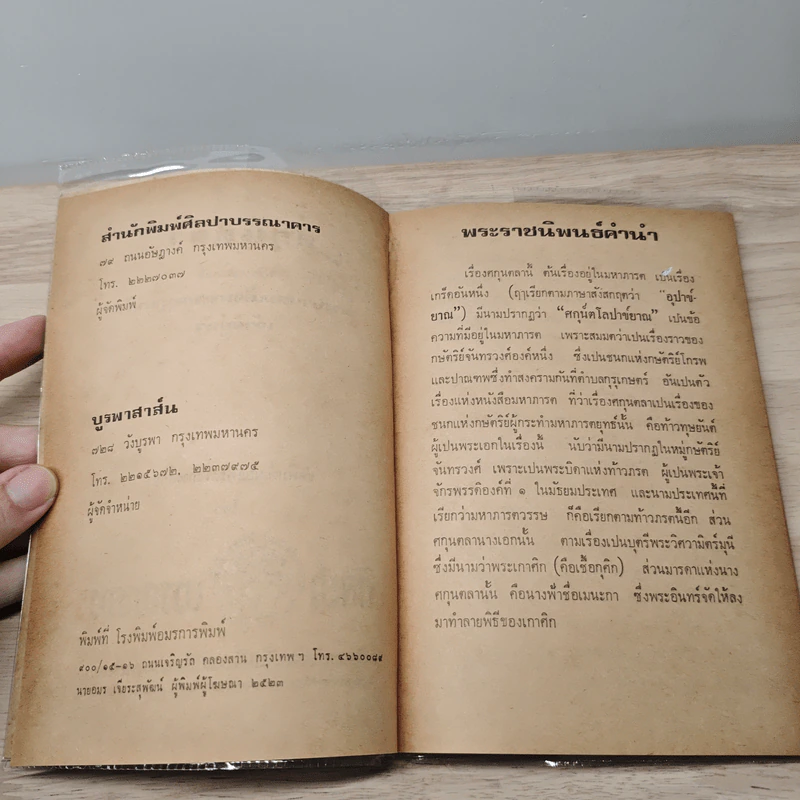 สำนักพิมพ์ศิลปาบรรณาคาร
๗๙ ถนนอัษฎางค์ กรุงเทพมหานคร
โทร. ๒๒๒๗๐๓๗
ผู้จัดพิมพ์
บูรพาสาส์น
๗๒๘ วังบูรพา กรุงเทพมหานคร
โทร. ๒๒๑๕๖๗๒. ๒๒๓๗๙๗๕
ผู้จัดจำหน่าย
พิมพ์ที่ โรงพิมพ์อมรการพิมพ์
๙๐๐/๑๕-๑๖ ถนนเจริญรัถ คลองสาน กรุงเทพ ฯ โทร. ๔๖๖๐๐๘๙
นายอมร เจียระสุพัฒน์ ผู้พิมพ์ผู้โฆษณา ๒๕๒๓
พระราชนิพนธ์คำนำ
เรื่องศกุนตลานี้ ต้นเรื่องอยู่ในมหาภารต เป็นเรื่อง
เกร็ดอันหนึ่ง (ฤๅเรียกตามภาษาสังสกฤตว่า “อุปาข์-
ยาณ”) มีนามปรากฏว่า “ศกุน์ตโลปาข์ยาณ” เปนข้อ
ความที่มีอยู่ในมหาภารต เพราะสมมตว่าเปนเรื่องราวของ
กษัตริย์จันทรวงศ์องค์หนึ่ง ซึ่งเปนชนกแห่งกษัตริย์โกรพ
และปาณฑพซึ่งทำสงครามกันที่ตำบลกุรุเกษตร์ อันเปนตัว
เรื่องแห่งหนังสือมหาภารต ที่ว่าเรื่องศกุนตลาเปนเรื่องของ
ชนกแห่งกษัตริย์ผู้กระทำมหาภารตยุทธ์นั้น คือท้าวทุษยันต์
ผู้เปนพระเอกในเรื่องนี้ นับว่ามีนามปรากฏในหมู่กษัตริย์
จันทรวงศ์ เพราะเปนพระบิดาแห่งท้าวภรต ผู้เปนพระเจ้า
จักรพรรดิองค์ที่ ๑ ในมัธยมประเทศ และนามประเทศนี้ที่
เรียกว่ามหาภารตวรรษ ก็คือเรียกตามท้าวภรตนี้อีก ส่วน
ศกุนตลานางเอกนั้น ตามเรื่องเปนบุตรีพระวิศวามิตร์มุนี
ซึ่งมีนามว่าพระเกาศิก (คือเชื้อกุศิก) ส่วนมารดาแห่งนาง
ศกุนตลานั้น คือนางฟ้าชื่อเมนะกา ซึ่งพระอินทร์จัดให้ลง
มาทำลายพิธีของเกาศิก